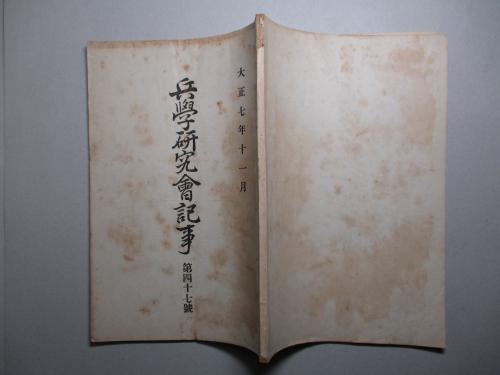 大正七年十一月
兵學研究會記事
第四十七號